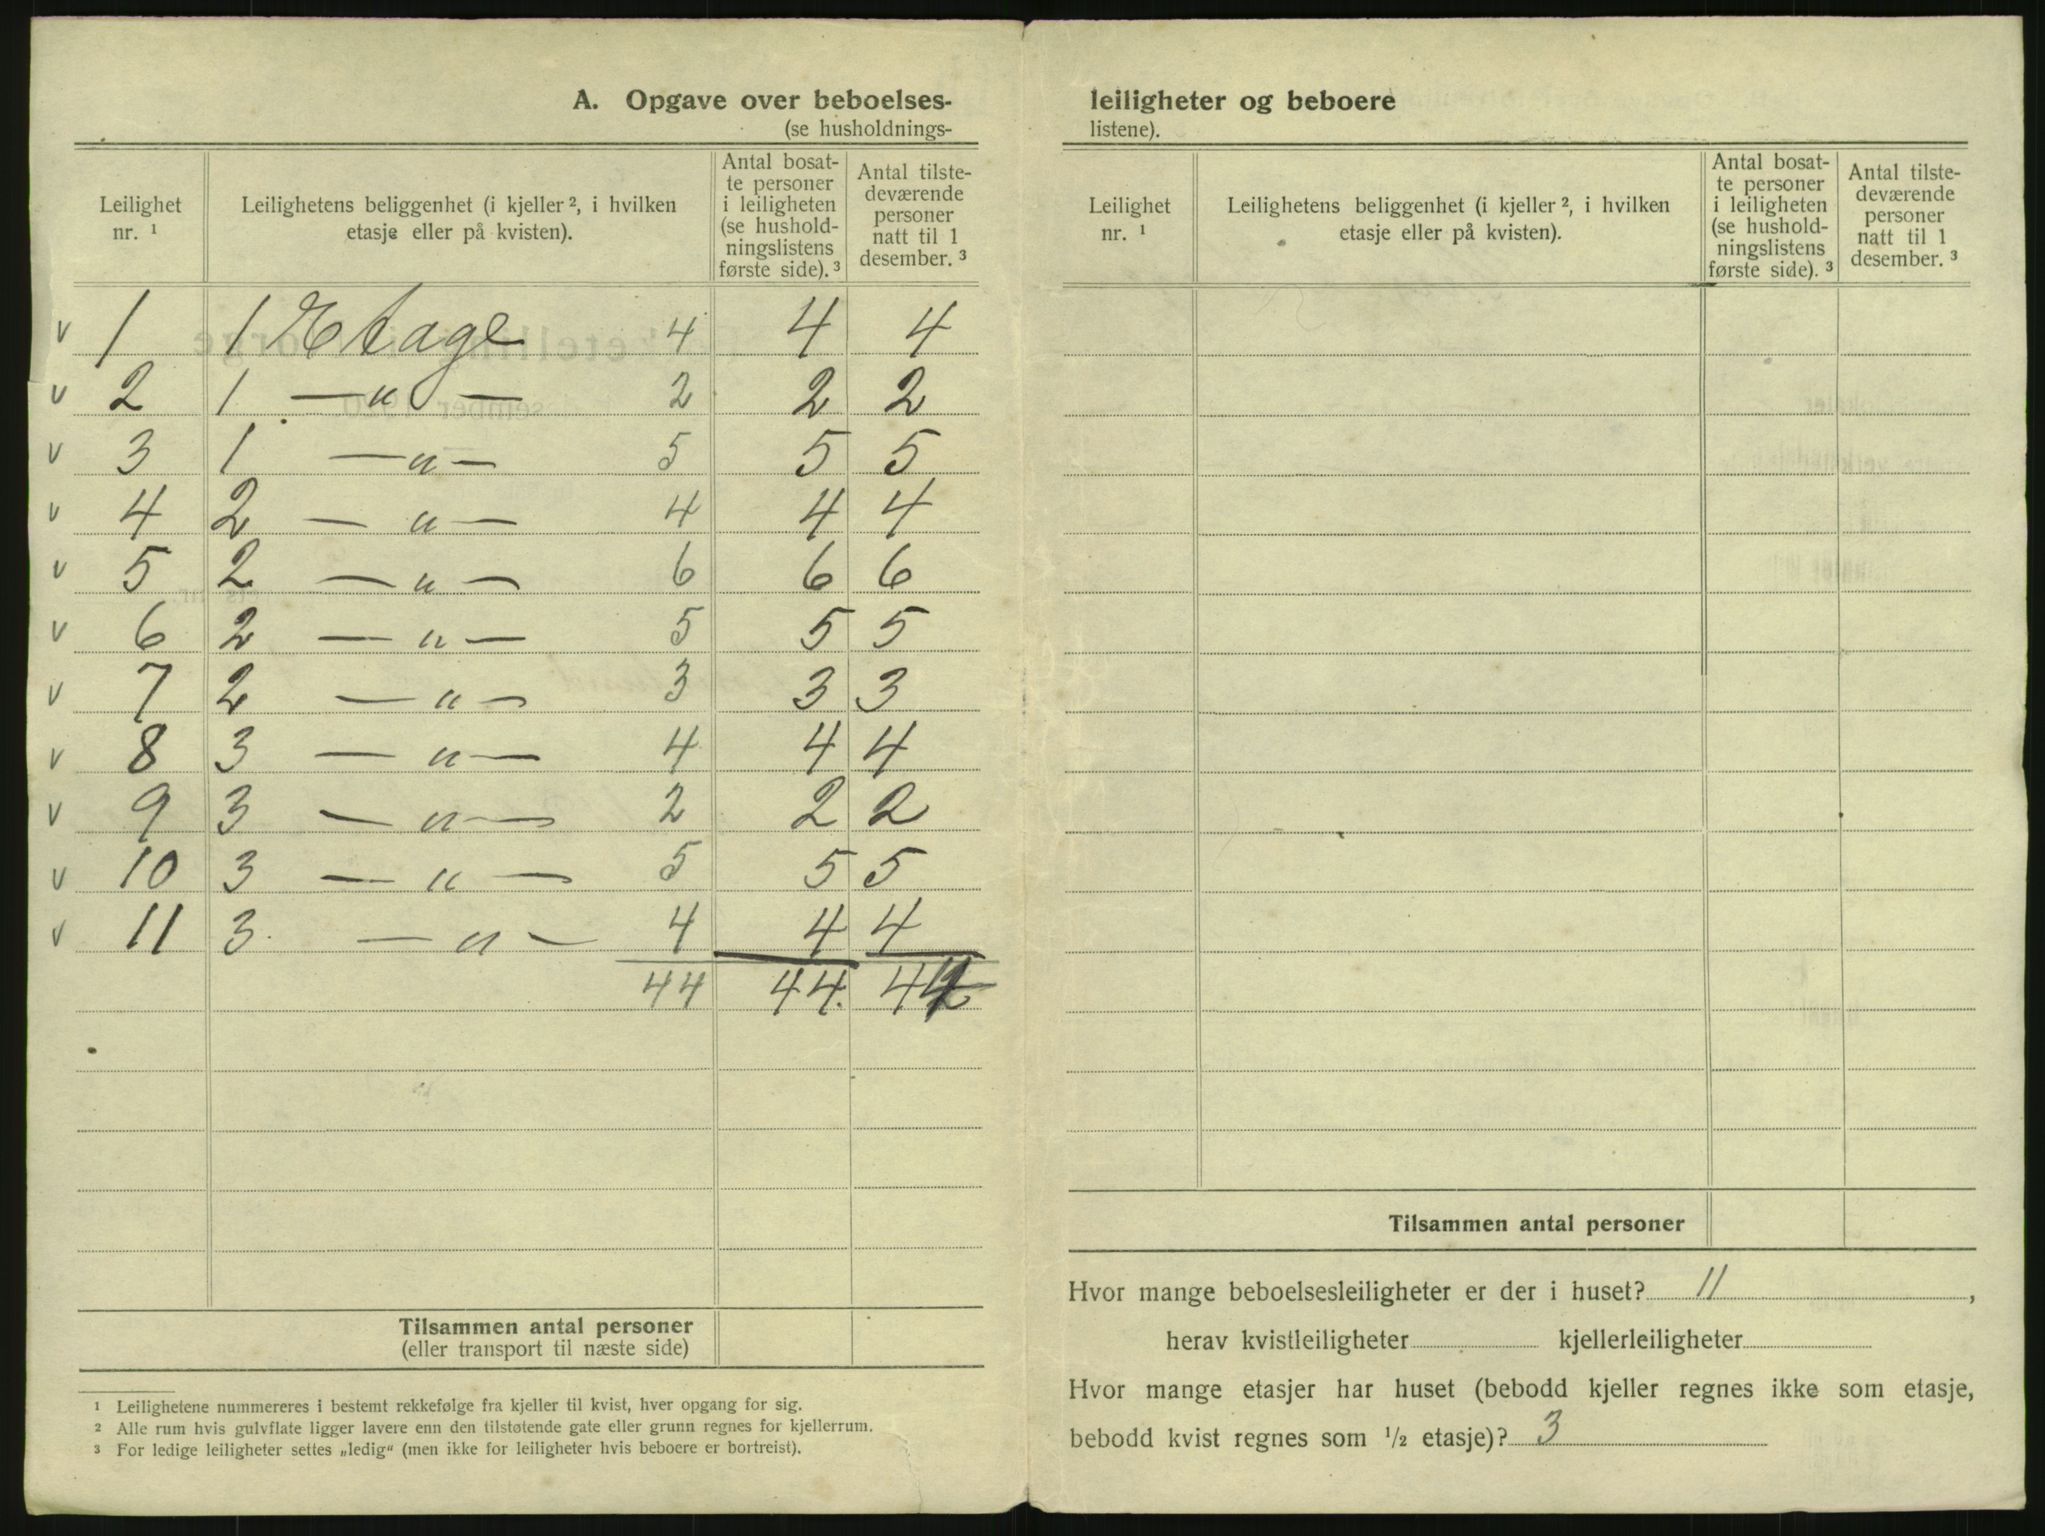 A. Opgave over beboelses-
(se husholdnings-
Leilighet nr. ¹
Leilighetens beliggenhet (i kjeller ², i hvilken etasje eller på kvisten).
Antal bosat-
te personer
i leiligheten
(se hushold-
ningslistens
første side). ³
Antal tilste-
deværende
personer
natt til 1
desember. ³
v 1 1 Etage 4 4 4
v 2 1 — " — 2 2 2
v 3 1 — " — 5 5 5
v 4 2 — " — 4 4 4
v 5 2 — " — 6 6 6
v 6 2 — " — 5 5 5
v 7 2 — " — 3 3 3
v 8 3 — " — 4 4 4
v 9 3 — " — 2 2 2
v 10 3 — " — 5 5 5
v 11 3 — " — 4 4 4
44 44. 44
Tilsammen antal personer
(eller transport til næste side)
¹ Leilighetene nummereres i bestemt rekkefølge fra kjeller til kvist, hver opgang for sig.
² Alle rum hvis gulvflate ligger lavere enn den tilstøtende gate eller grunn regnes for kjellerrum.
³ For ledige leiligheter settes „ledig“ (men ikke for leiligheter hvis beboere er bortreist).
leiligheter og beboere
listene).
Leilighet nr. ¹
Leilighetens beliggenhet (i kjeller ², i hvilken etasje eller på kvisten).
Antal bosat-
te personer
i leiligheten
(se hushold-
ningslistens
første side). ³
Antal tilste-
deværende
personer
natt til 1
desember. ³
Tilsammen antal personer
Hvor mange beboelsesleiligheter er der i huset? 11,
herav kvistleiligheter kjellerleiligheter
Hvor mange etasjer har huset (bebodd kjeller regnes ikke som etasje,
bebodd kvist regnes som ½ etasje)? 3